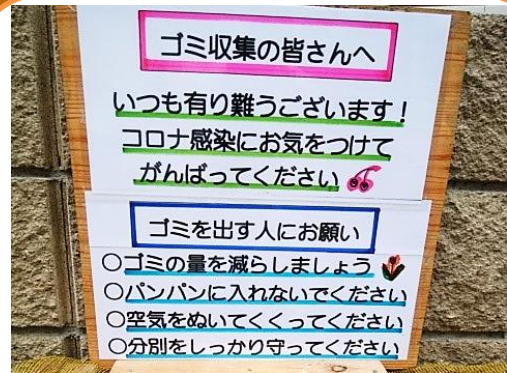 ゴミ収集の皆さんへ
いつも有り難うございます!
コロナ感染にお気をつけて
がんばってください
ゴミを出す人にお願い
○ゴミの量を減らしましょう
○パンパンに入れないでください
○空気をぬいてくくってください
○分別をしっかり守ってください